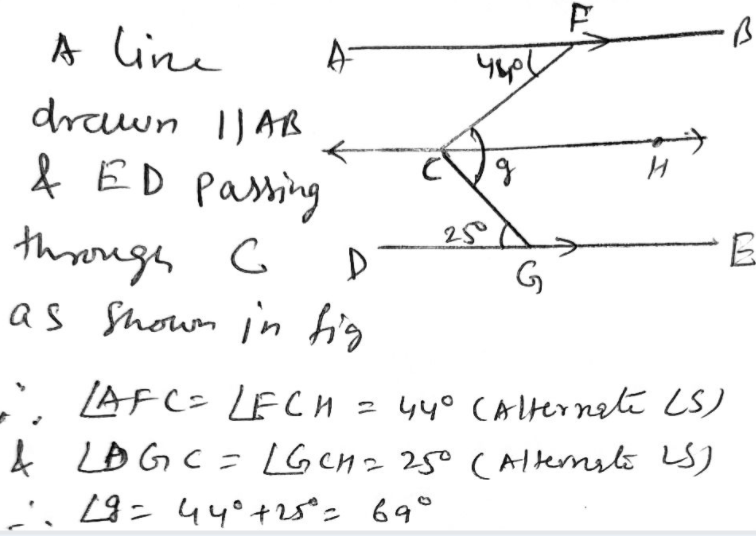 A line
drawn || AB
& ED passing
through C
as shown in fig
A F B
44°
C g H
25°
D G E
∴ ∠AFC = ∠FCH = 44° (Alternate ∠S)
& ∠DGC = ∠GCH = 25° (Alternate ∠S)
∴ ∠g = 44° + 25° = 69°